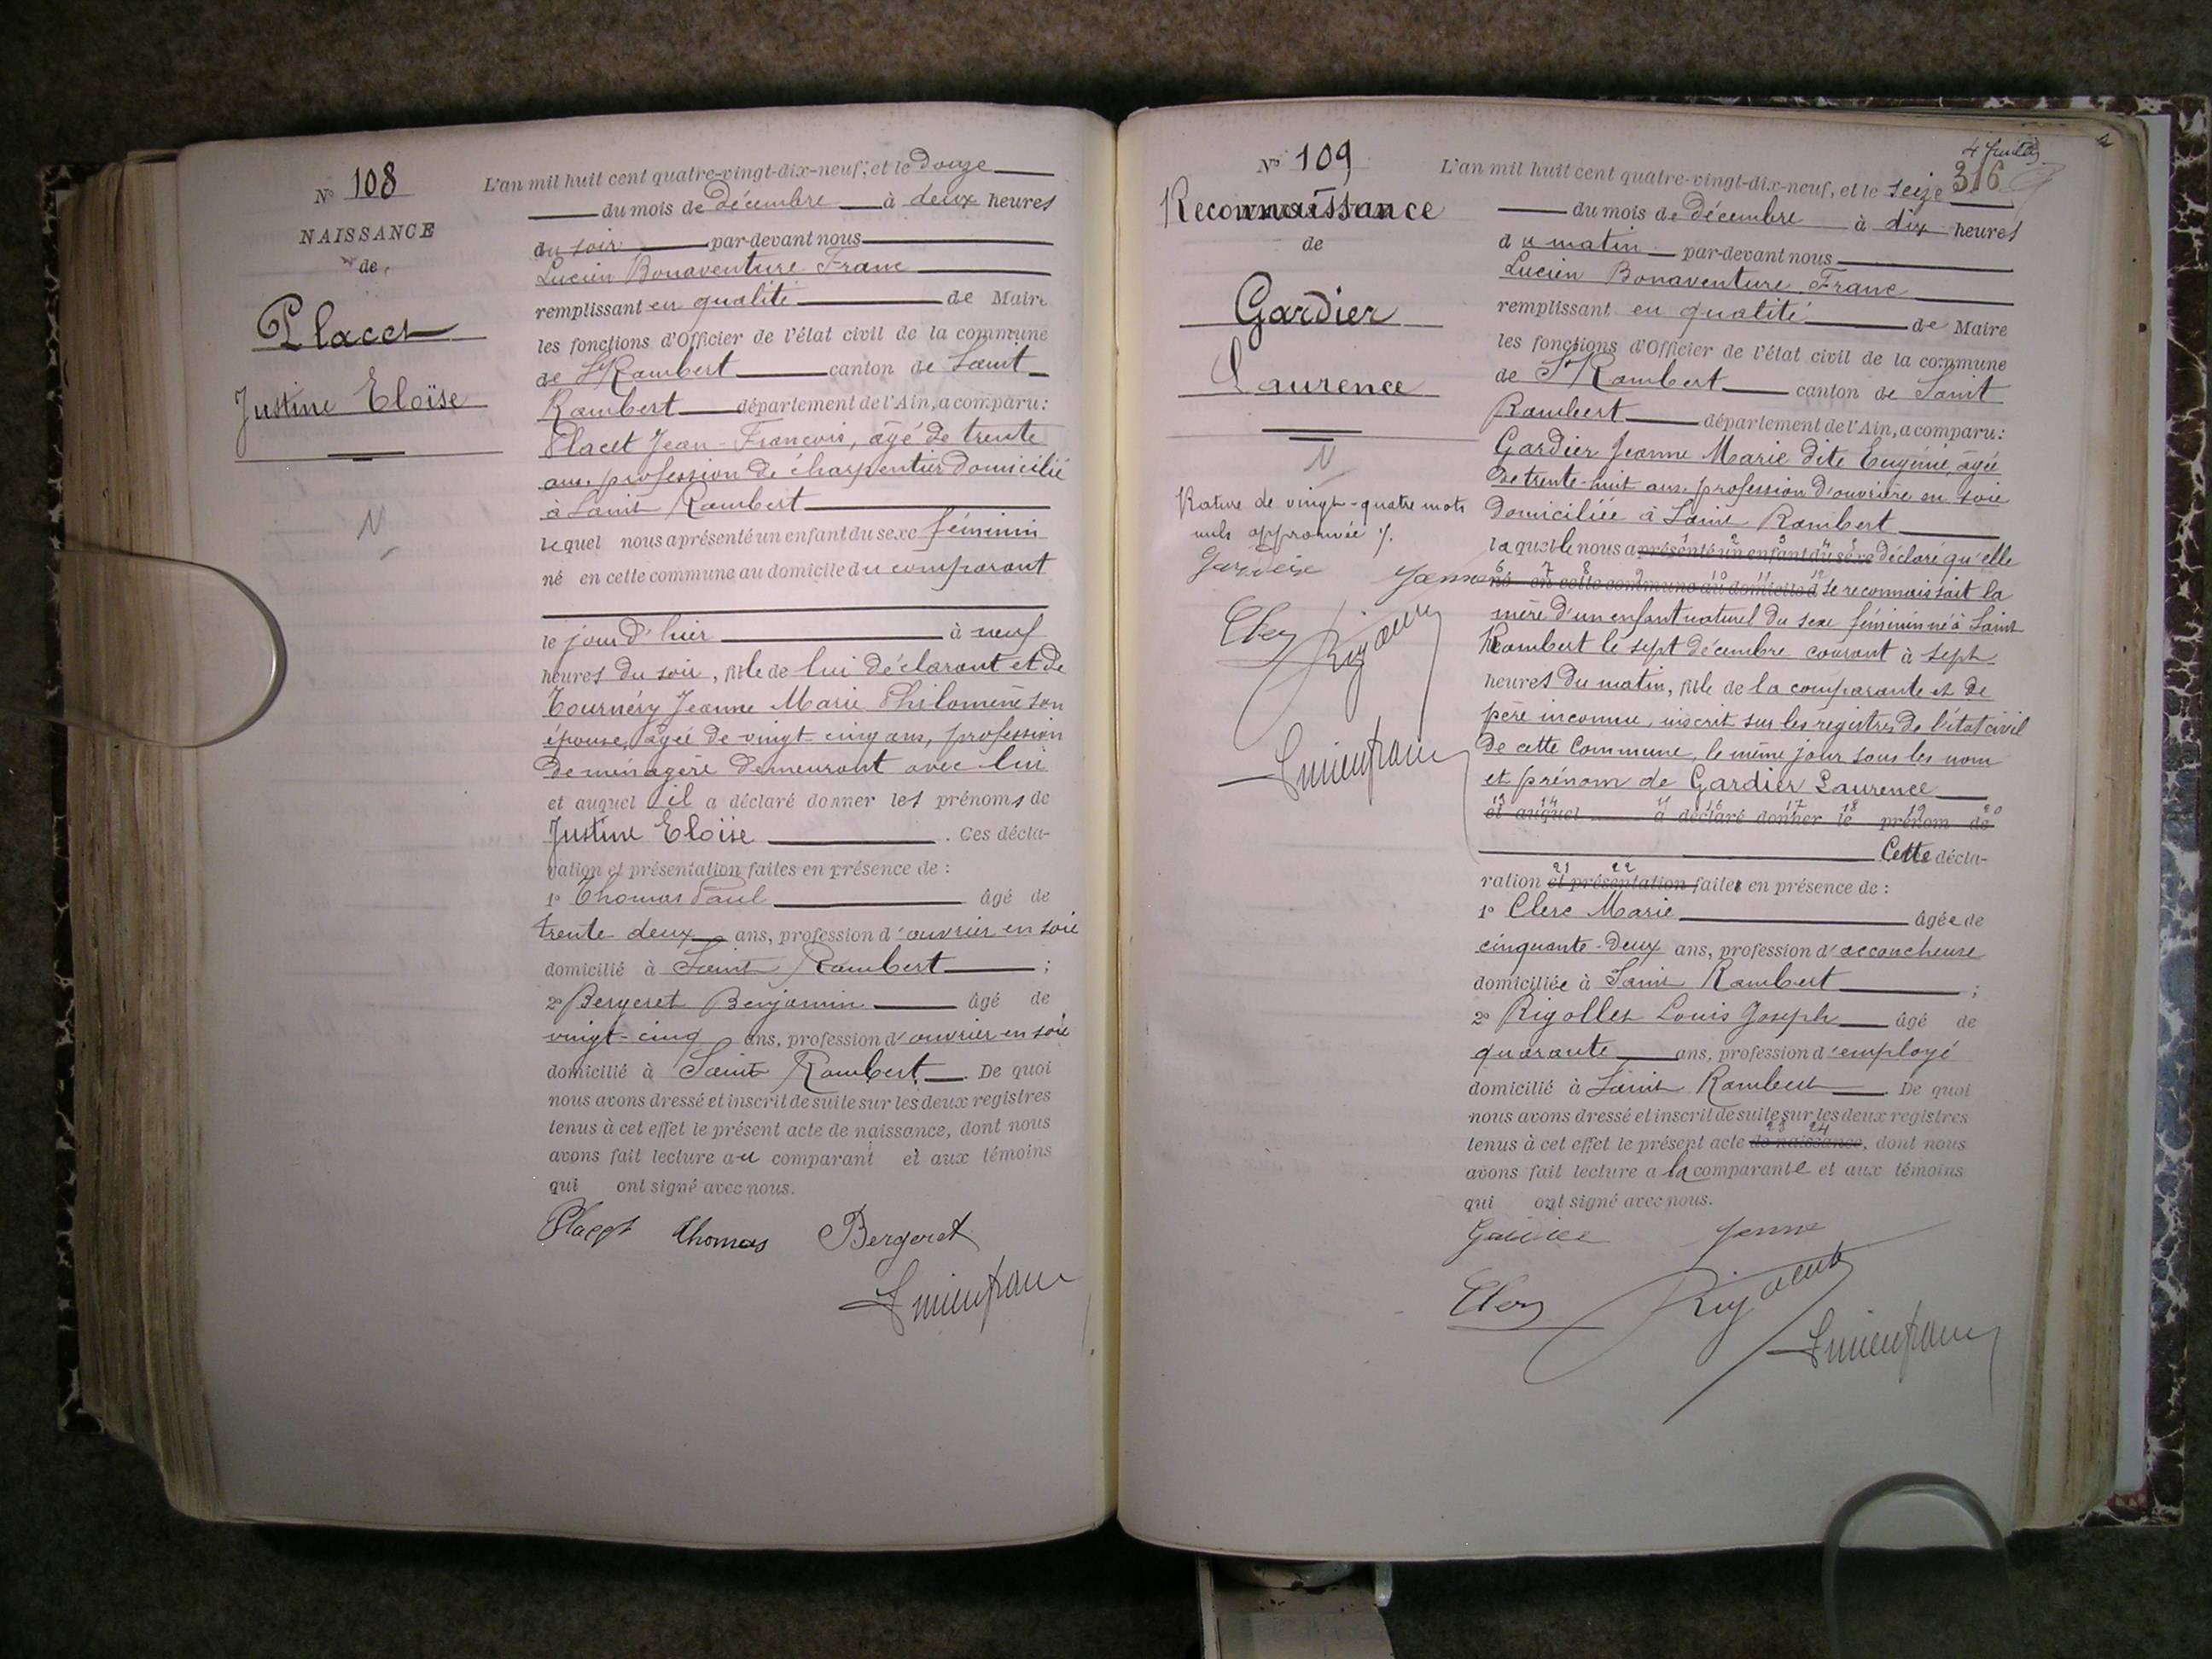 N° 108
NAISSANCE
de
Placet
Justine Eloïse
N
L'an mil huit cent quatre-vingt-dix-neuf, et le douze
du mois de décembre à deux heures
du soir par-devant nous
Lucien Bonaventure Franc
remplissant en qualité de Maire
les fonctions d'Officier de l'état civil de la commune
de St Rambert canton de Saint
Rambert département de l'Ain, a comparu:
Placet Jean-François, âgé de trente
ans, profession de charpentier domicilié
à Saint Rambert
lequel nous a présenté un enfant du sexe féminin
né en cette commune au domicile du comparant
le jour d'hier à neuf
heures du soir, fille de lui déclarant et de
Tournéry Jeanne Marie Philomène son
épouse, âgée de vingt cinq ans, profession
de ménagère demeurant avec lui
et auquel il a déclaré donner les prénoms de
Justine Eloïse . Ces décla-
ration et présentation faites en présence de :
1° Thomas Paul âgé de
trente deux ans, profession d'ouvrier en soie
domicilié à Saint Rambert ;
2° Bergeret Benjamin âgé de
vingt-cinq ans, profession d'ouvrier en soie
domicilié à Saint Rambert. De quoi
nous avons dressé et inscrit de suite sur les deux registres
tenus à cet effet le présent acte de naissance, dont nous
avons fait lecture au comparant et aux témoins
qui ont signé avec nous.
Placet Thomas Bergeret
Lucien Franc
N° 109
Reconnaissance
de
Gardier
Laurence
N
Rature de vingt-quatre mots
nuls approuvée %.
Gardier Jeanne
Rigollet
Lucien Franc
316
L'an mil huit cent quatre-vingt-dix-neuf, et le seize
du mois de Décembre à dix heures
du matin par-devant nous
Lucien Bonaventure Franc
remplissant en qualité de Maire
les fonctions d'Officier de l'état civil de la commune
de St Rambert canton de Saint
Rambert département de l'Ain, a comparu:
Gardier Jeanne Marie dite Eugénie, âgée
de trente-huit ans, profession d'ouvrière en soie
domiciliée à Saint Rambert
1 2 3 4 5
laquelle nous a présenté un enfant du sexe déclaré qu'elle
6 7 8 9 10 11 12
né en cette commune au domicile d se reconnaissait la
mère d'un enfant naturel du sexe féminin né à Saint
Rambert le sept décembre courant à sept
heures du matin, fille de la comparante et de
père inconnu, inscrit sur les registres de l'état civil
de cette Commune, le même jour sous les nom
et prénom de Gardier Laurence
13 14 15 16 17 18 19 20
et auquel il a déclaré donner le prénom de
Cette décla-
21 22
ration et présentation faite en présence de :
1° Clerc Marie âgée de
cinquante-deux ans, profession d'accoucheuse
domiciliée à Saint Rambert ;
2° Rigollet Louis Joseph âgé de
quarante ans, profession d'employé
domicilié à Saint Rambert. De quoi
nous avons dressé et inscrit de suite sur les deux registres
23 24
tenus à cet effet le présent acte de naissance, dont nous
avons fait lecture a la comparante et aux témoins
qui ont signé avec nous.
Gardier Jeanne
Rigollet
Lucien Franc